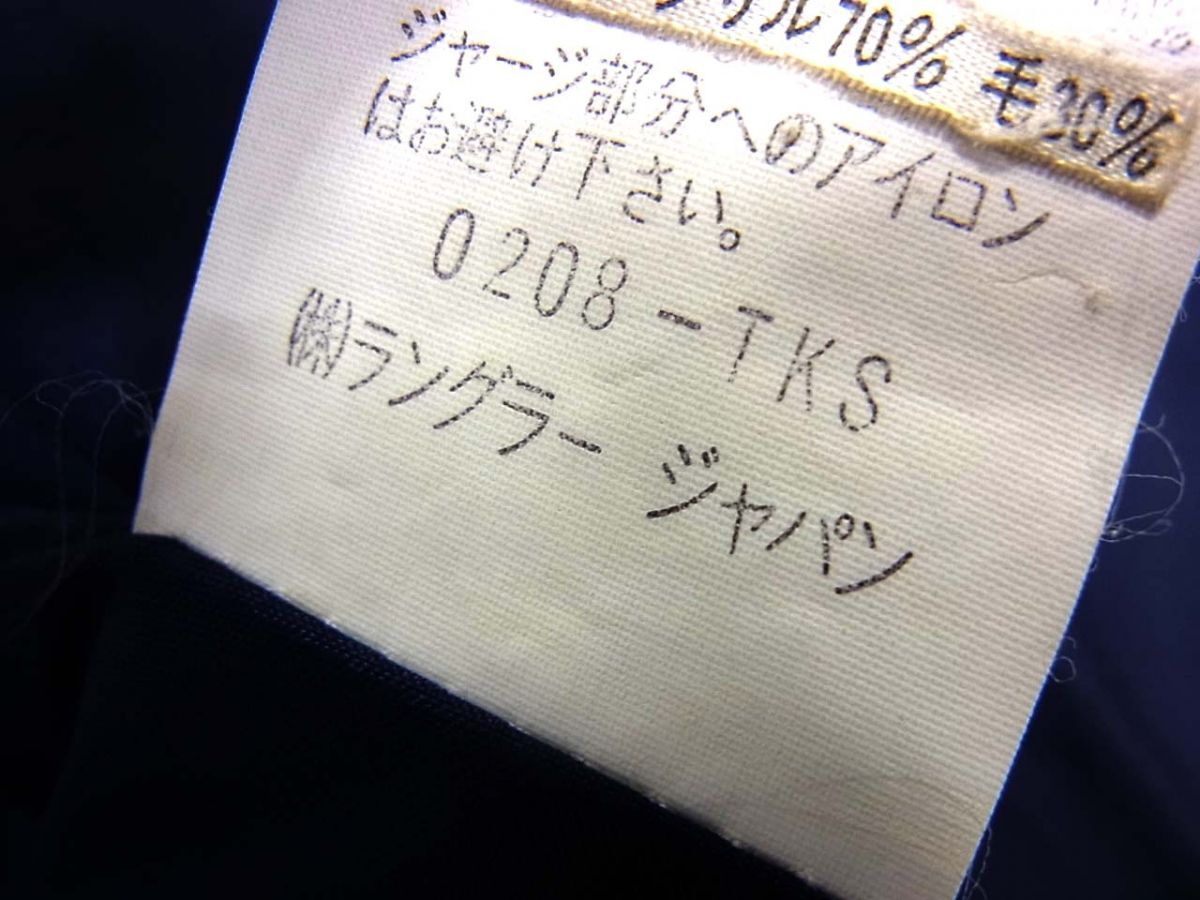 70% 毛30%
ジャージ部分へのアイロン
はお避け下さい。
0208-TKS
㈱ラングラー ジャパン